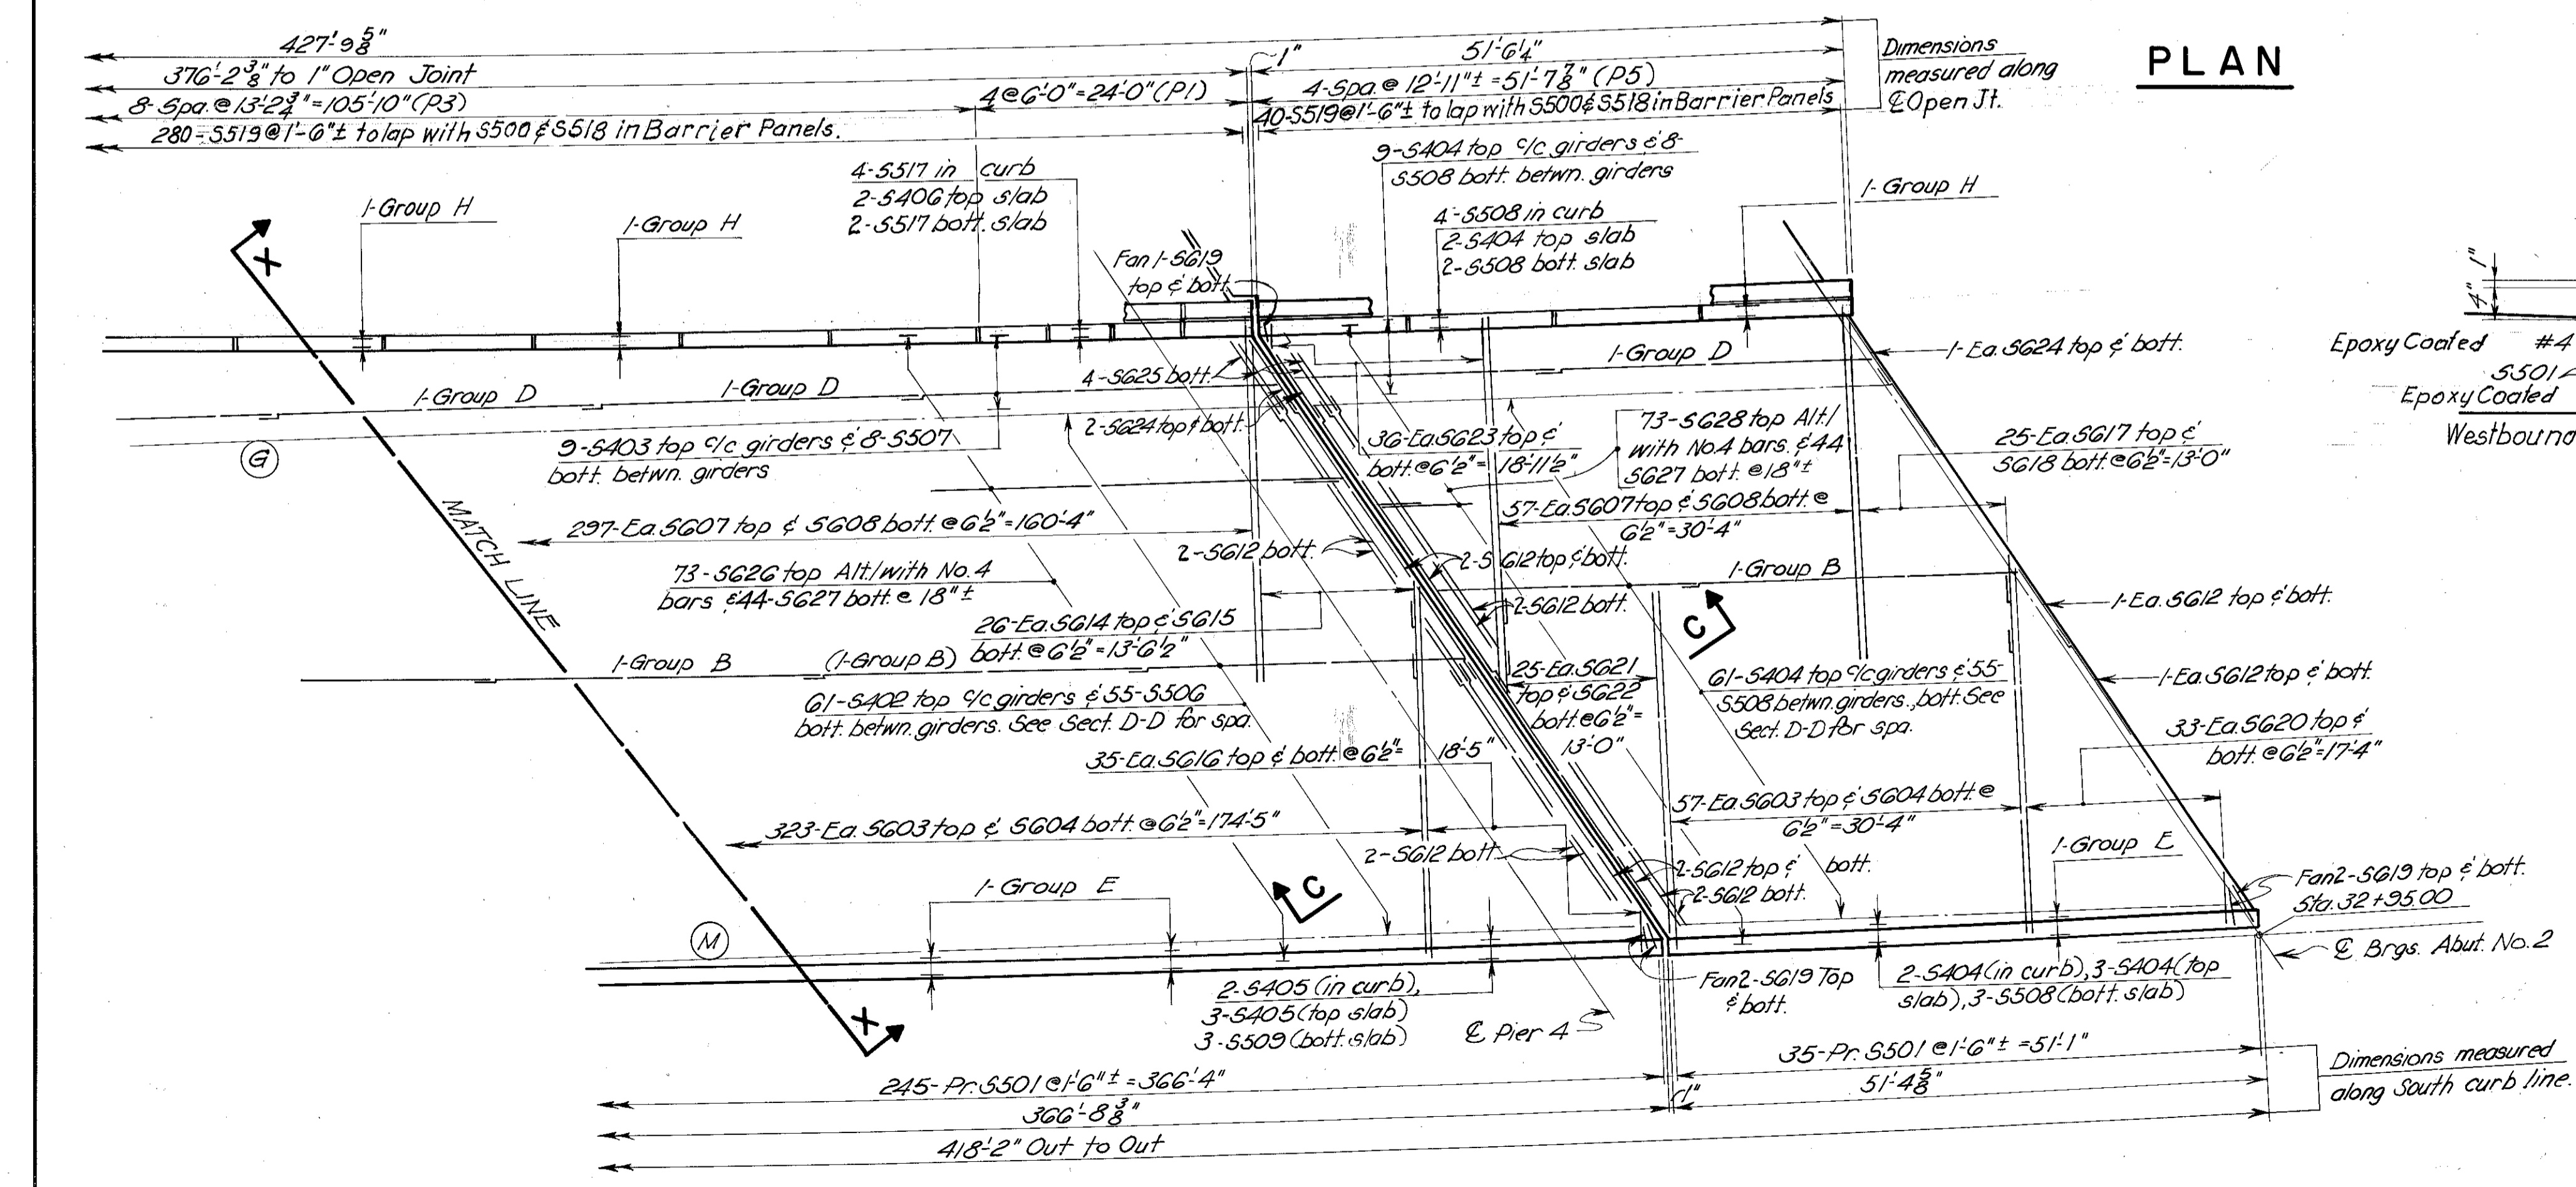 427'-9 5/8"
376'-2 3/8" to 1" Open Joint
8-Spa. @ 13'-2 3/4" = 105'-10" (P3)
4 @ 6'-0" = 24'-0" (P1)
280-S519 @ 1'-6"± to lap with S500 & S518 in Barrier Panels.
1"
51'-6 1/4"
4-Spa. @ 12'-11"± = 51'-7 7/8" (P5)
40-S519 @ 1'-6"± to lap with S500 & S518 in Barrier Panels
Dimensions
measured along
℄ Open Jt.
PLAN
1-Group H
1-Group H
4-S517 in curb
2-S406 top slab
2-S517 bott. slab
9-S404 top c/c girders & 8-
S508 bott. betwn. girders
4-S508 in curb
2-S404 top slab
2-S508 bott. slab
1-Group H
X
Fan 1-S619
top & bott.
1"
4"
Epoxy Coated #4
S501
Epoxy Coated
Westbound
1-Group D
1-Group D
G
9-S403 top c/c girders & 8-S507
bott. betwn. girders
4-S625 bott.
2-S624 top & bott.
1-Group D
1-Ea. S624 top & bott.
36-Ea. S623 top &
bott. @ 6 1/2" = 18'-11 1/2"
73-S628 top Alt./
with No.4 bars. & 44
S627 bott. @ 18"±
25-Ea. S617 top &
S618 bott. @ 6 1/2" = 13'-0"
MATCH LINE
297-Ea. S607 top & S608 bott. @ 6 1/2" = 160'-4"
57-Ea. S607 top & S608 bott. @
6 1/2" = 30'-4"
2-S612 bott.
2-S612 top & bott.
73-S626 top Alt./with No.4
bars & 44-S627 bott. @ 18"±
1-Group B
2-S612 bott.
1-Ea. S612 top & bott.
26-Ea. S614 top & S615
bott. @ 6 1/2" = 13'-6 1/2"
C
1-Group B
(1-Group B)
61-S402 top c/c girders & 55-S506
bott. betwn. girders. See Sect. D-D for spa.
25-Ea. S621
top & S622
bott. @ 6 1/2" =
13'-0"
61-S404 top c/c girders & 55-
S508 betwn. girders., bott. See
Sect. D-D for spa.
1-Ea. S612 top & bott.
35-Ea. S616 top & bott. @ 6 1/2" = 18'-5"
33-Ea. S620 top &
bott. @ 6 1/2" = 17'-4"
323-Ea. S603 top & S604 bott. @ 6 1/2" = 174'-5"
57-Ea S603 top & S604 bott. @
6 1/2" = 30'-4"
2-S612 bott.
2-S612 top & bott.
2-S612 bott.
1-Group E
1-Group E
C
Fan 2-S619 top & bott.
Sta. 32+95.00
℄ Brgs. Abut. No. 2
M
X
2-S405 (in curb),
3-S405 (top slab)
3-S509 (bott. slab)
℄ Pier 4
Fan 2-S619 Top
& bott.
2-S404 (in curb), 3-S404 (top
slab), 3-S508 (bott. slab)
245-Pr. S501 @ 1'-6"± = 366'-4"
35-Pr. S501 @ 1'-6"± = 51'-1"
366'-8 3/8"
1"
51'-4 5/8"
418'-2" Out to Out
Dimensions measured
along South curb line.